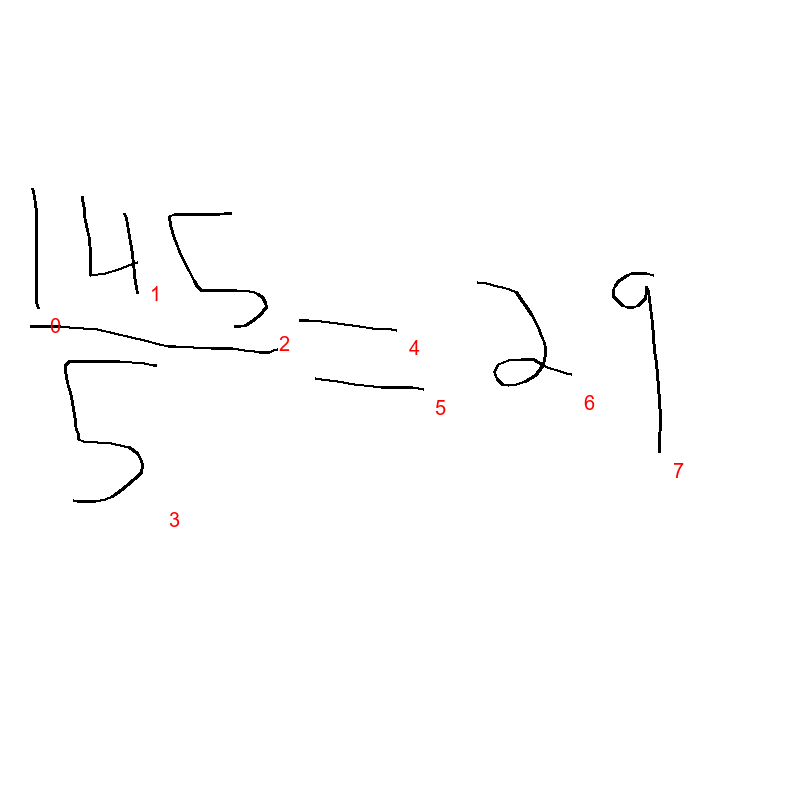 145
5
= 29
0 1 2 3 4 5 6 7